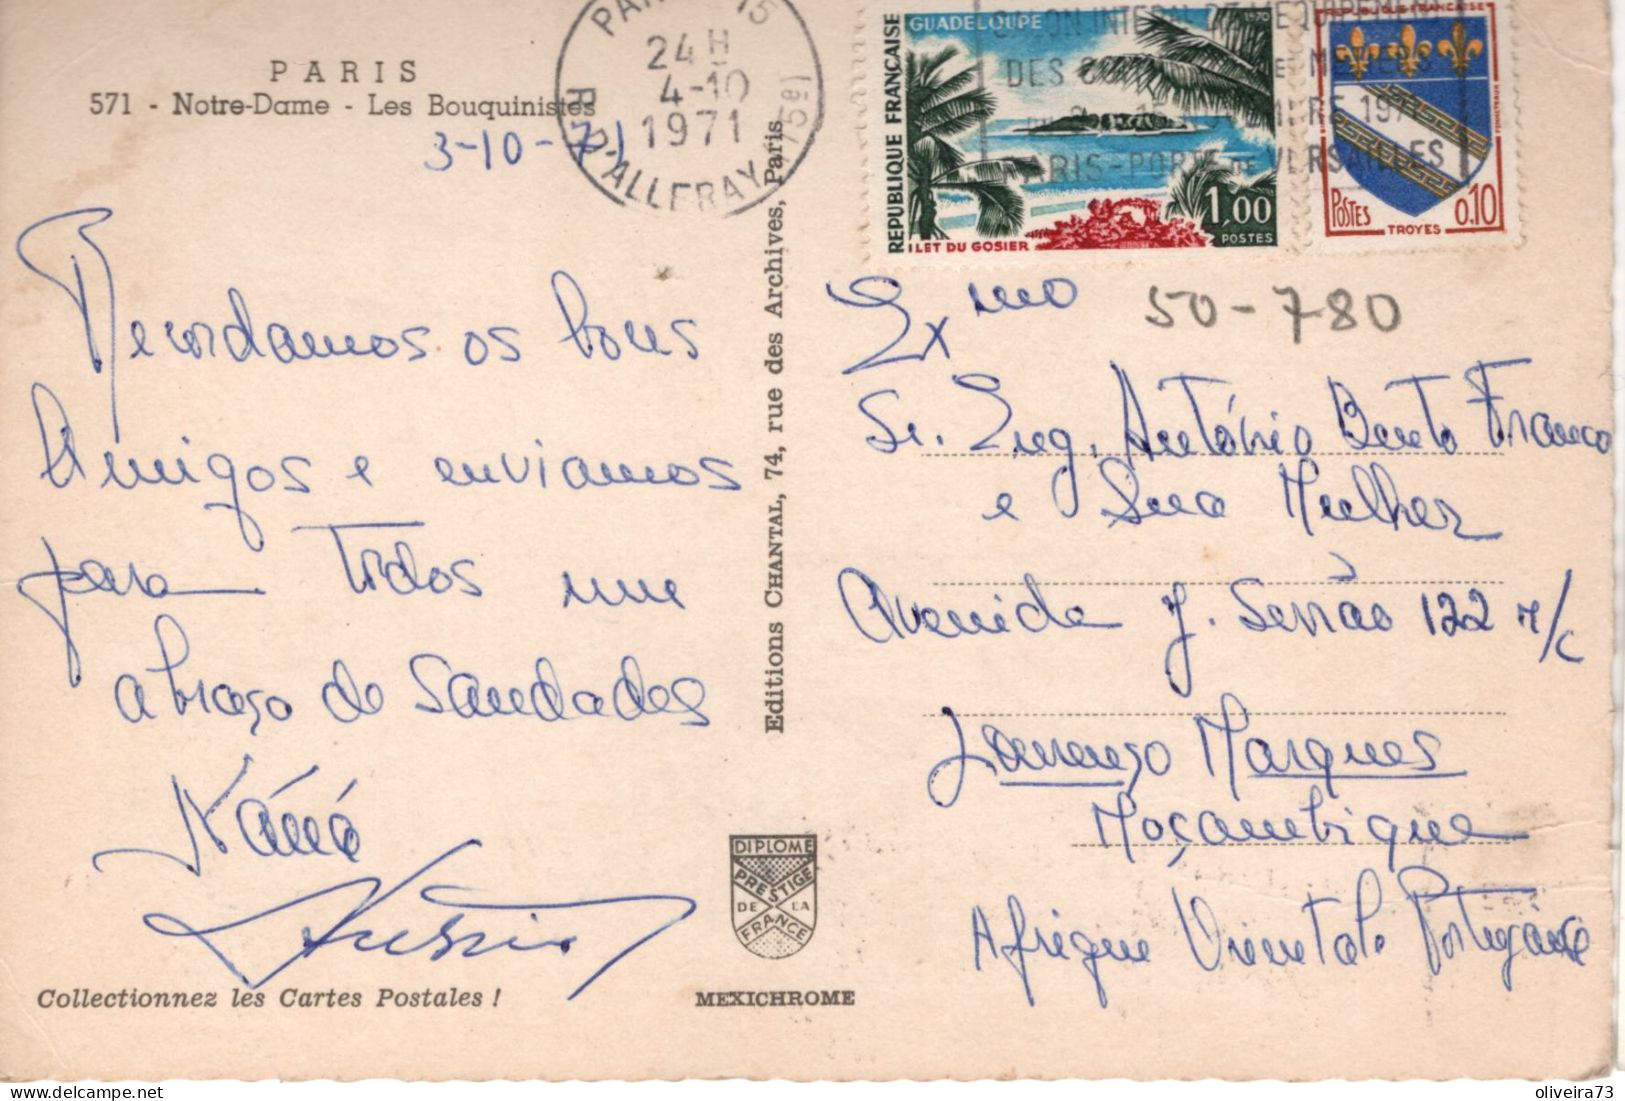 PARIS
571 - Notre-Dame - Les Bouquinistes
3-10-71
Recordamos os bons
Amigos e enviamos
para Todos um
abraço de Saudades
Náná
Collectionnez les Cartes Postales !
PARIS 15
24H
4-10
1971
R. D'ALLERAY (15e)
Editions CHANTAL, 74, rue des Archives, Paris
DIPLOME
PRESTIGE
DE LA
FRANCE
MEXICHROME
GUADELOUPE 1970
REPUBLIQUE FRANCAISE
ILET DU GOSIER
1,00
POSTES
REPUBLIQUE FRANCAISE
POSTES 0.10
TROYES
PARIS-PORTE DE VERSAILLES
Exmo 50-780
Sr. Eng. António Bento Franco
e Sua Mulher
Avenida J. Serrão 122 r/c
Lourenço Marques
Moçambique
Afrique Orientale Portugaise
oliveira73